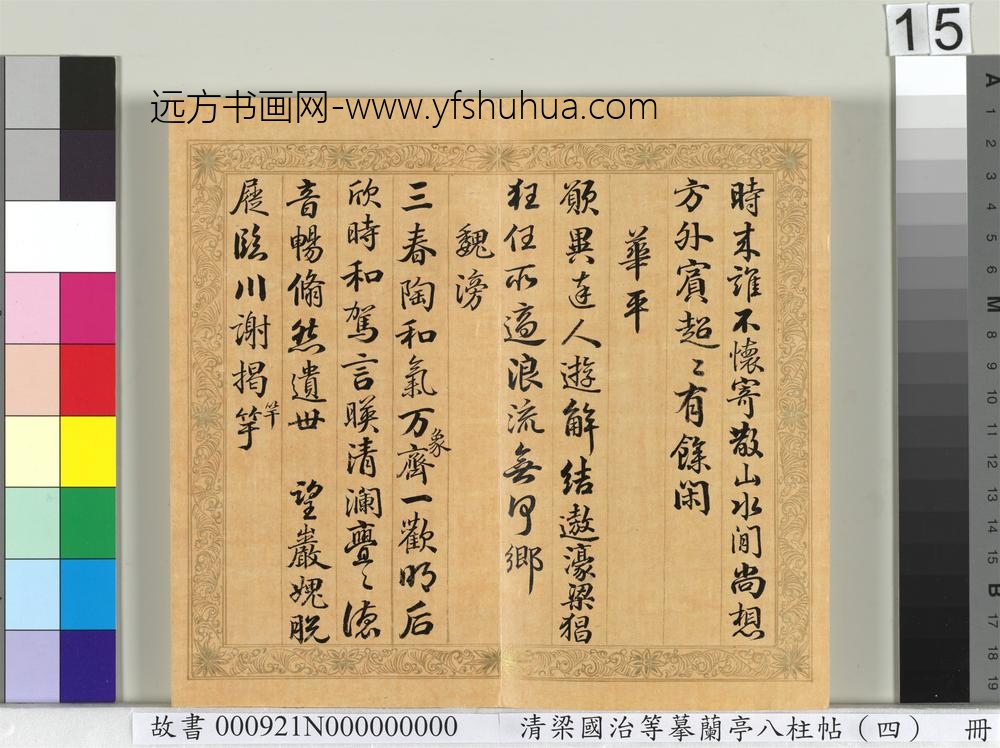 15
远方书画网-www.yfshuhua.com
時来誰不懷寄散山水間尚想
方外賓超〻有餘閑
華平
願異達人遊解結遨濠梁狷
狂任所適浪流無何鄉
魏滂
三春陶和氣万象齊一歡明后
欣時和駕言暎清瀾亹〻德
音暢翛然遺世 望巖愧脱
屣臨川謝揭竿竿
A
1
2
3
4
5
6
M
8
9
10
11
12
13
14
15
B
17
18
19
故書 000921N000000000 清梁國治等摹蘭亭八柱帖（四） 冊